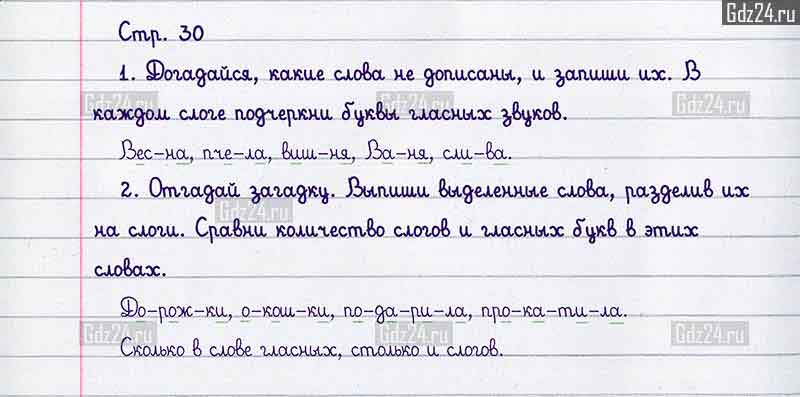 Gdz24.ru
Стр. 30
1. Догадайся, какие слова не дописаны, и запиши их. В
Gdz24.ru Gdz24.ru Gdz24.ru
каждом слоге подчеркни буквы гласных звуков.
Вес-на, пче-ла, виш-ня, Ва-ня, сли-ва.
2. Отгадай загадку. Выпиши выделенные слова, разделив их
Gdz24.ru Gdz24.ru
на слоги. Сравни количество слогов и гласных букв в этих
словах.
До-рож-ки, о-кош-ки, по-да-ри-ла, про-ка-ти-ла.
Gdz24.ru Gdz24.ru Gdz24.ru
Сколько в слове гласных, столько и слогов.